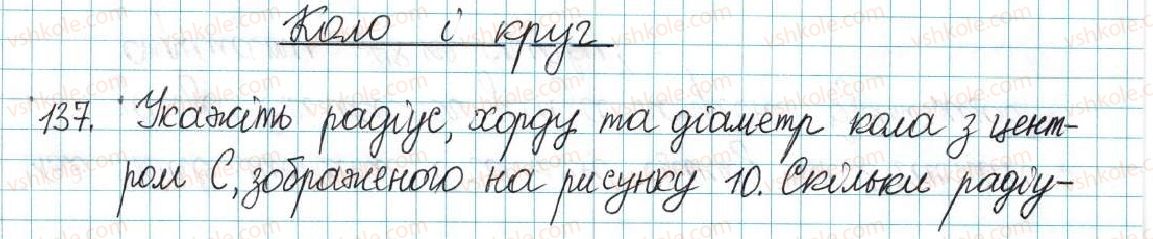 Коло і круг
137. Укажіть радіус, хорду та діаметр кола з цент-
ром С, зображеного на рисунку 10. Скільки радіу-